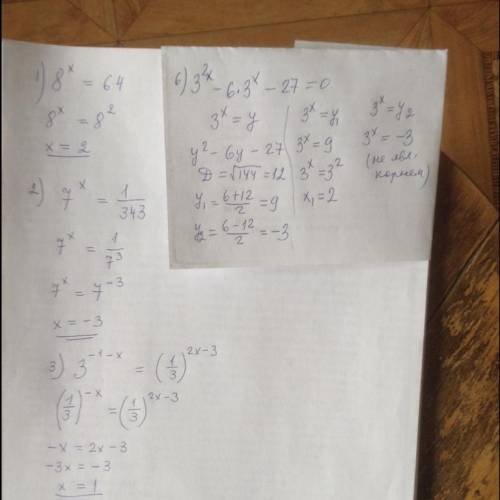 1) 8^x = 64
8^x = 8^2
x = 2
2) 7^x = 1/343
7^x = 1/7^3
7^x = 7^-3
x = -3
3) 3^-1-x = (1/3)^2x-3
(1/3)^-x = (1/3)^2x-3
-x = 2x-3
-3x = -3
x = 1
6) 3^2x - 6·3^x - 27 = 0
3^x = y
y^2 - 6y - 27
D = √144 = 12
y₁ = 6+12/2 = 9
y₂ = 6-12/2 = -3
3^x = y₁
3^x = 9
3^x = 3^2
x₁ = 2
3^x = y₂
3^x = -3
(не явл.
корнем)